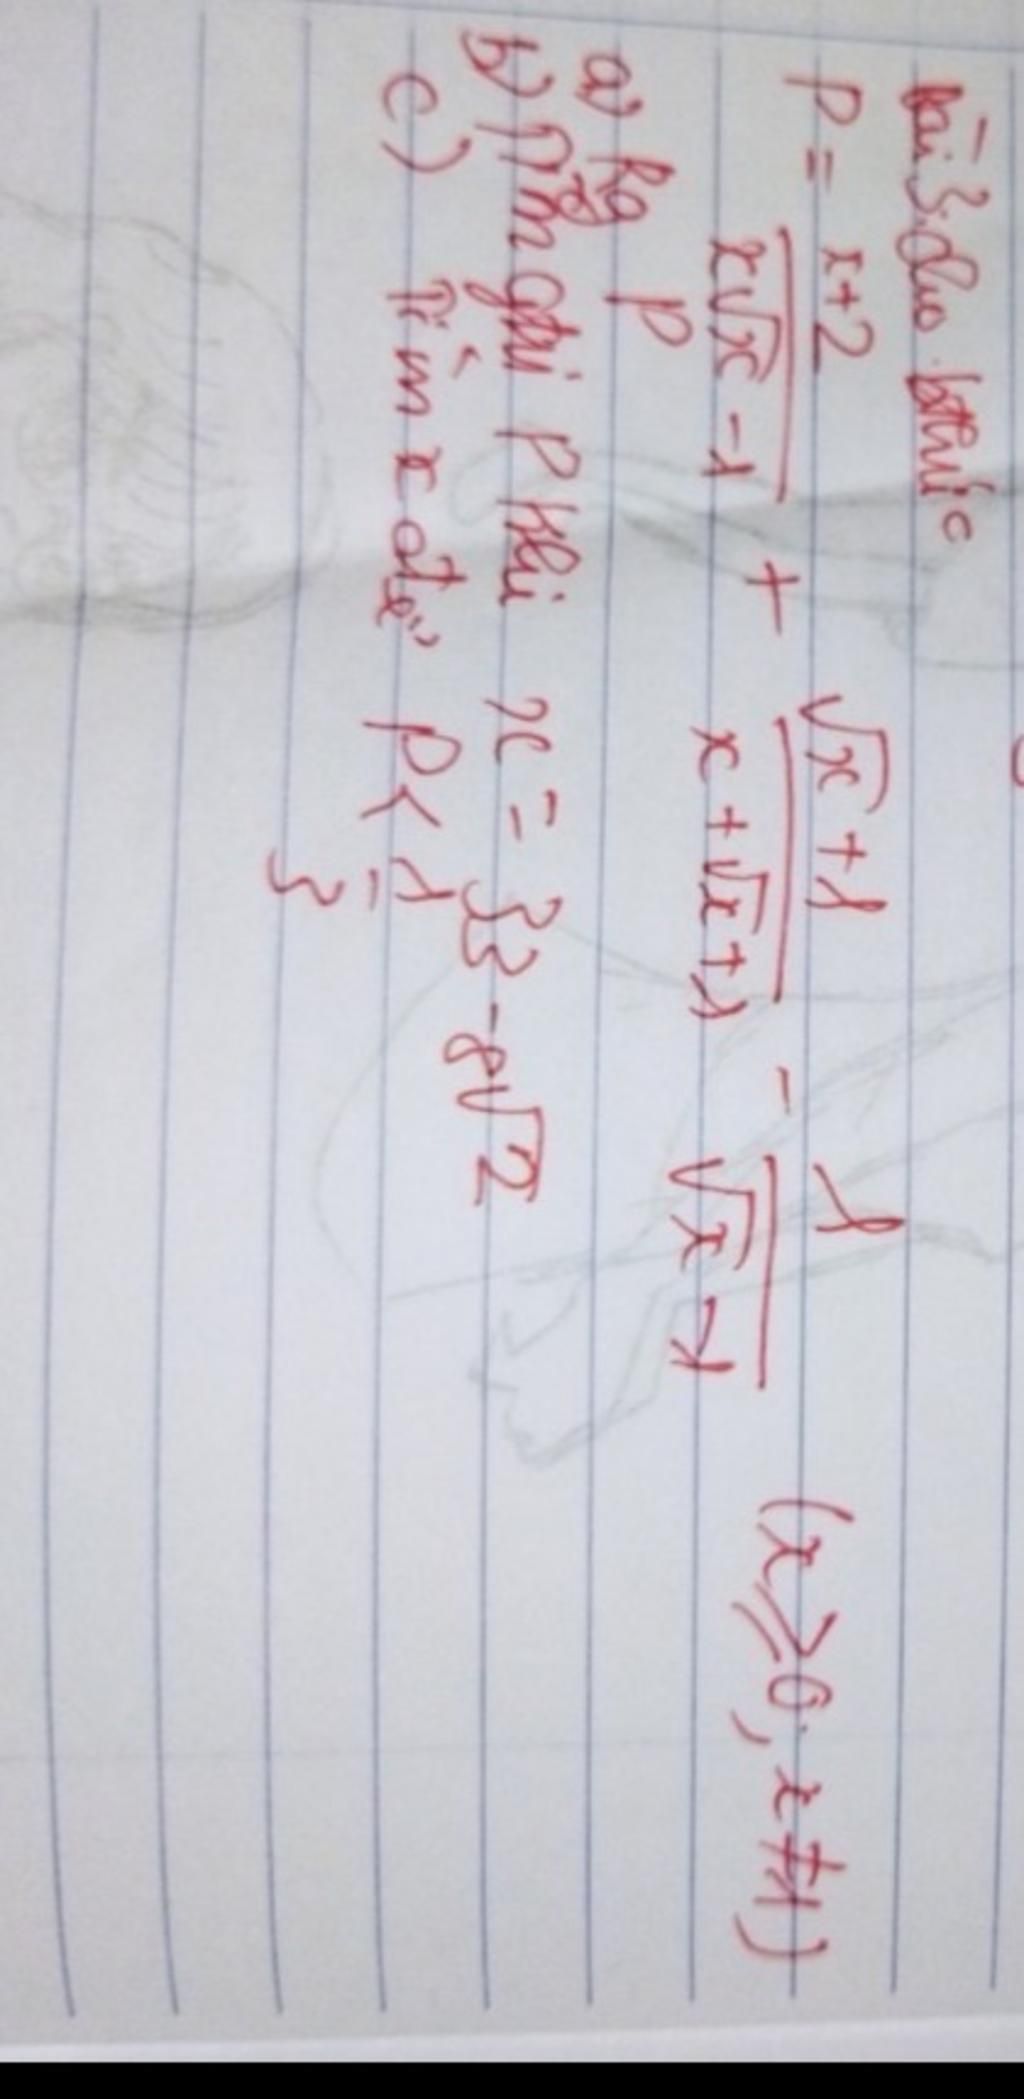 Bài 3. Cho bthức
P = \frac{x+2}{x\sqrt{x}-1} + \frac{\sqrt{x}+1}{x+\sqrt{x}+1} - \frac{1}{\sqrt{x}-1} (x ≥ 0, x ≠ 1)
a) Rg P
b) Tính gtrị P khi x = 33 - 8\sqrt{2}
c) Tìm x để P < \frac{1}{3}